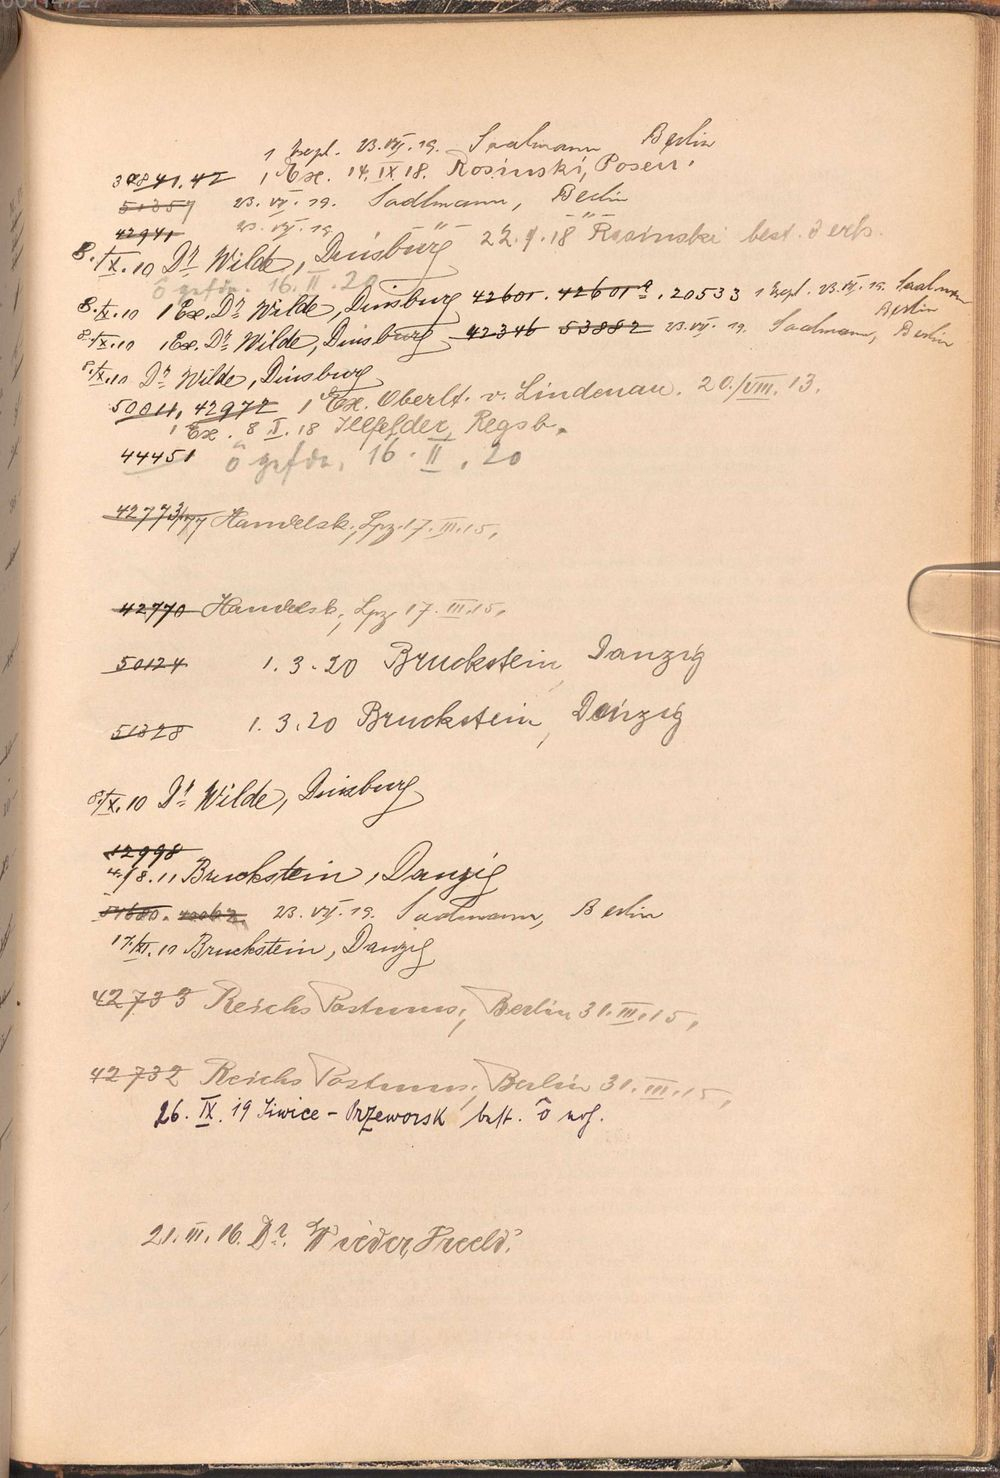 1 Expl. 23.VII.19. Saalmann Berlin
37841.42 1 Ex. 14.IX 18. Rosinski, Posen.
51357 23.VII.19. Saalmann, Berlin
42941 23.VII.19. -"- -"-
8./X.10 Dr. Wilde, Duisburg 22.9.18 Rosinski best. d erh.
ô gefdn. 16.II.20
8./X.10 1 Ex. Dr. Wilde, Duisburg 42601. 42601a. 20533 1 Expl. 23.VII.19. Saalmann
Berlin
8./X.10 1 Ex. Dr. Wilde, Duisburg 42346 53882 23.VII.19. Saalmann, Berlin
8./X.10 Dr. Wilde, Duisburg
50011, 42972 1 Ex. Oberlt. v. Lindenau. 20./VIII.13.
1 Ex. 8 X.18 Regsb.
44451 ô gefdn. 16.II.20
42773/77 Handelsk., Lpz. 17.III.15.
42770 Handelsk., Lpz. 17.III.15.
50124 1.3.20 Bruckstein, Danzig
51328 1.3.20 Bruckstein, Danzig
8./X.10 Dr. Wilde, Duisburg
12998
4./8.11 Bruckstein, Danzig
23.VII.19. Saalmann, Berlin
17./XI.10 Bruckstein, Danzig
42733 Reichs Postmus., Berlin 31.III.15.
42732 Reichs Postmus., Berlin 31.III.15.
26.IX.19 Siwiec - Przeworsk best. ô
21.III.16. Dr.